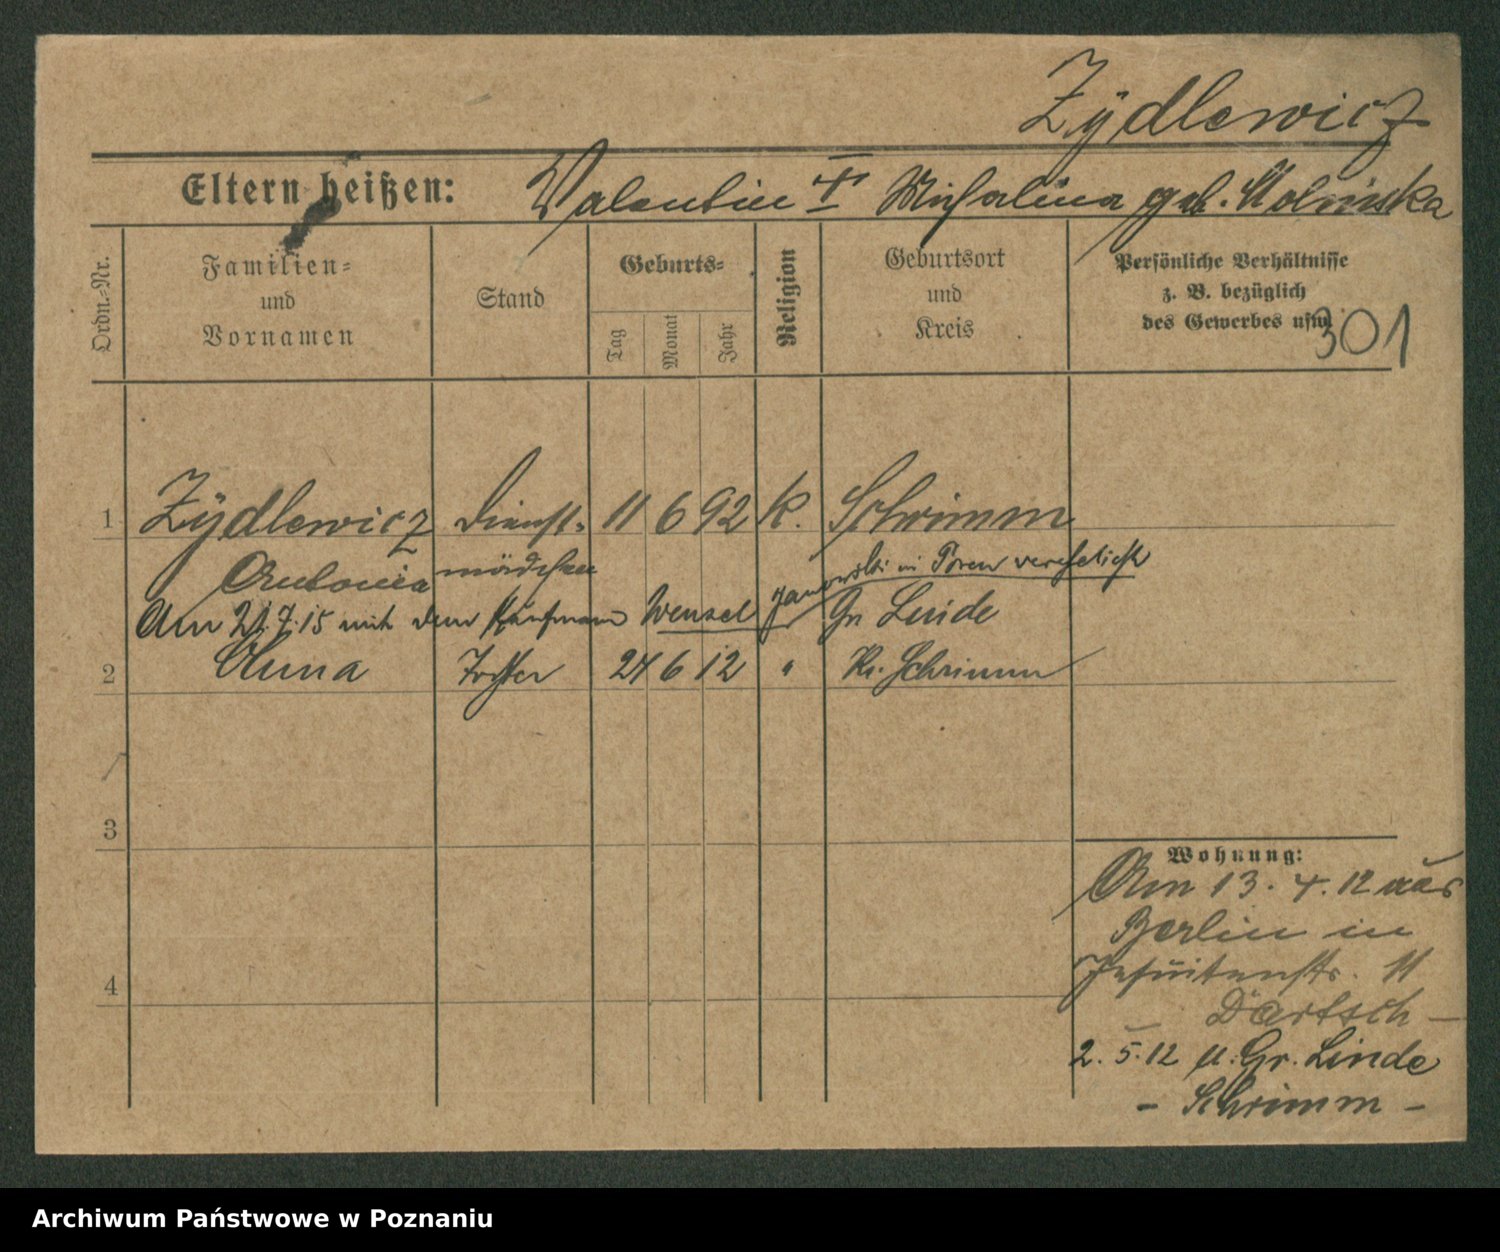 Zÿdlewicz
Eltern heißen: Valentin † Michalina geb.
Ordn.-Nr.
Familien- und Vornamen
Stand
Geburts-
Tag
Monat
Jahr
Religion
Geburtsort und Kreis
Persönliche Verhältnisse
z. B. bezüglich
des Gewerbes usw.
301
1 Zÿdlewicz Dienst- 11 6 92 K. Schrimm
Antonia mädchen
Am 21.7.15 mit dem Kaufmann Wenzel Janowski in Posen verehelicht
Gr. Linde
2 Anna Tochter 24 6 12 " Kr. Schrimm
3
4
Wohnung:
Am 13. 4. 12 aus
Berlin in
Jesuitenstr. 11
- Dartsch -
2. 5. 12 n. Gr. Linde
- Schrimm -